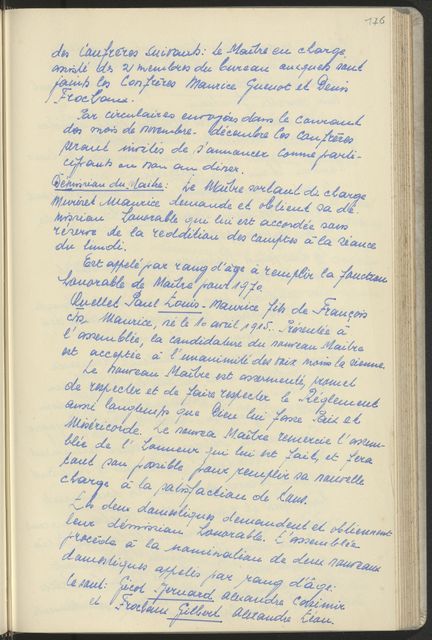 176
des Confrères suivants: le Maître en charge
assisté des 2 membres du bureau auxquels sont
joints les Confrères Maurice Guenot et Denis
Frochaux.
Par circulaires envoyées dans le courant
des mois de novembre - décembre les confrères
seront invités de s'annoncer comme parti-
cipants ou non au dîner.
Démission du Maître: Le Maître sortant de charge
Muriset Maurice demande et obtient sa dé-
mission honorable qui lui est accordée sous
réserve de la reddition des comptes à la séance
du lundi.
Est appelé par rang d'âge à remplir la fonction
honorable de Maître pour 1970
Quellet Paul Louis - Maurice fils de François
Chs Maurice, né le 10 avril 1915. Présentée à
l'assemblée, la candidature du nouveau Maître
est acceptée à l'unanimité des voix moins la sienne.
Le nouveau Maître est assermenté, promet
de respecter et de faire respecter le Règlement
aussi longtemps que Dieu lui fasse Paix et
Miséricorde. Le nouveau Maître remercie l'assem-
blée de l'honneur qui lui est fait, et fera
tout son possible pour remplir sa nouvelle
charge à la satisfaction de tous.
Les deux domestiques demandent et obtiennent
leur démission honorable. L'assemblée
procède à la nomination de deux nouveaux
domestiques appelés par rang d'âge.
Ce sont: Gicot Bernard Alexandre Casimir
et Frochaux Gilbert Alexandre Léon.